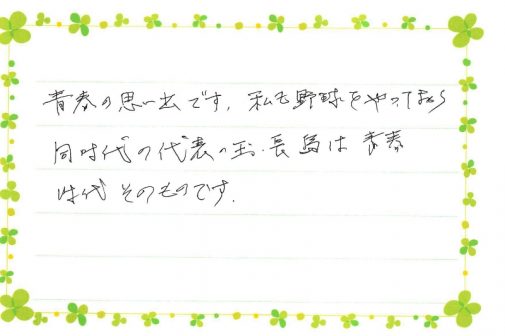 青春の思い出です。私も野球をやっており
同時代の代表の王.長島は青春
時代そのものです.